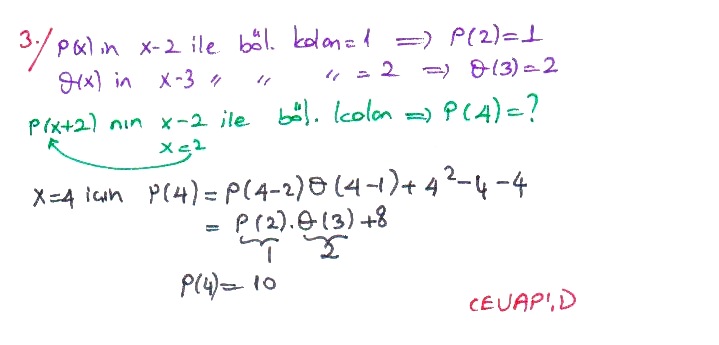 3./ P(x) in x-2 ile böl. kalan=1 => P(2)=1
Q(x) in x-3 〃 〃 〃 = 2 => Q(3)=2
P(x+2) nin x-2 ile böl. kalan => P(4)=?
x=2
x=4 için P(4)=P(4-2)Q(4-1)+4²-4-4
= P(2).Q(3)+8
1 2
P(4)=10
CEVAP:D